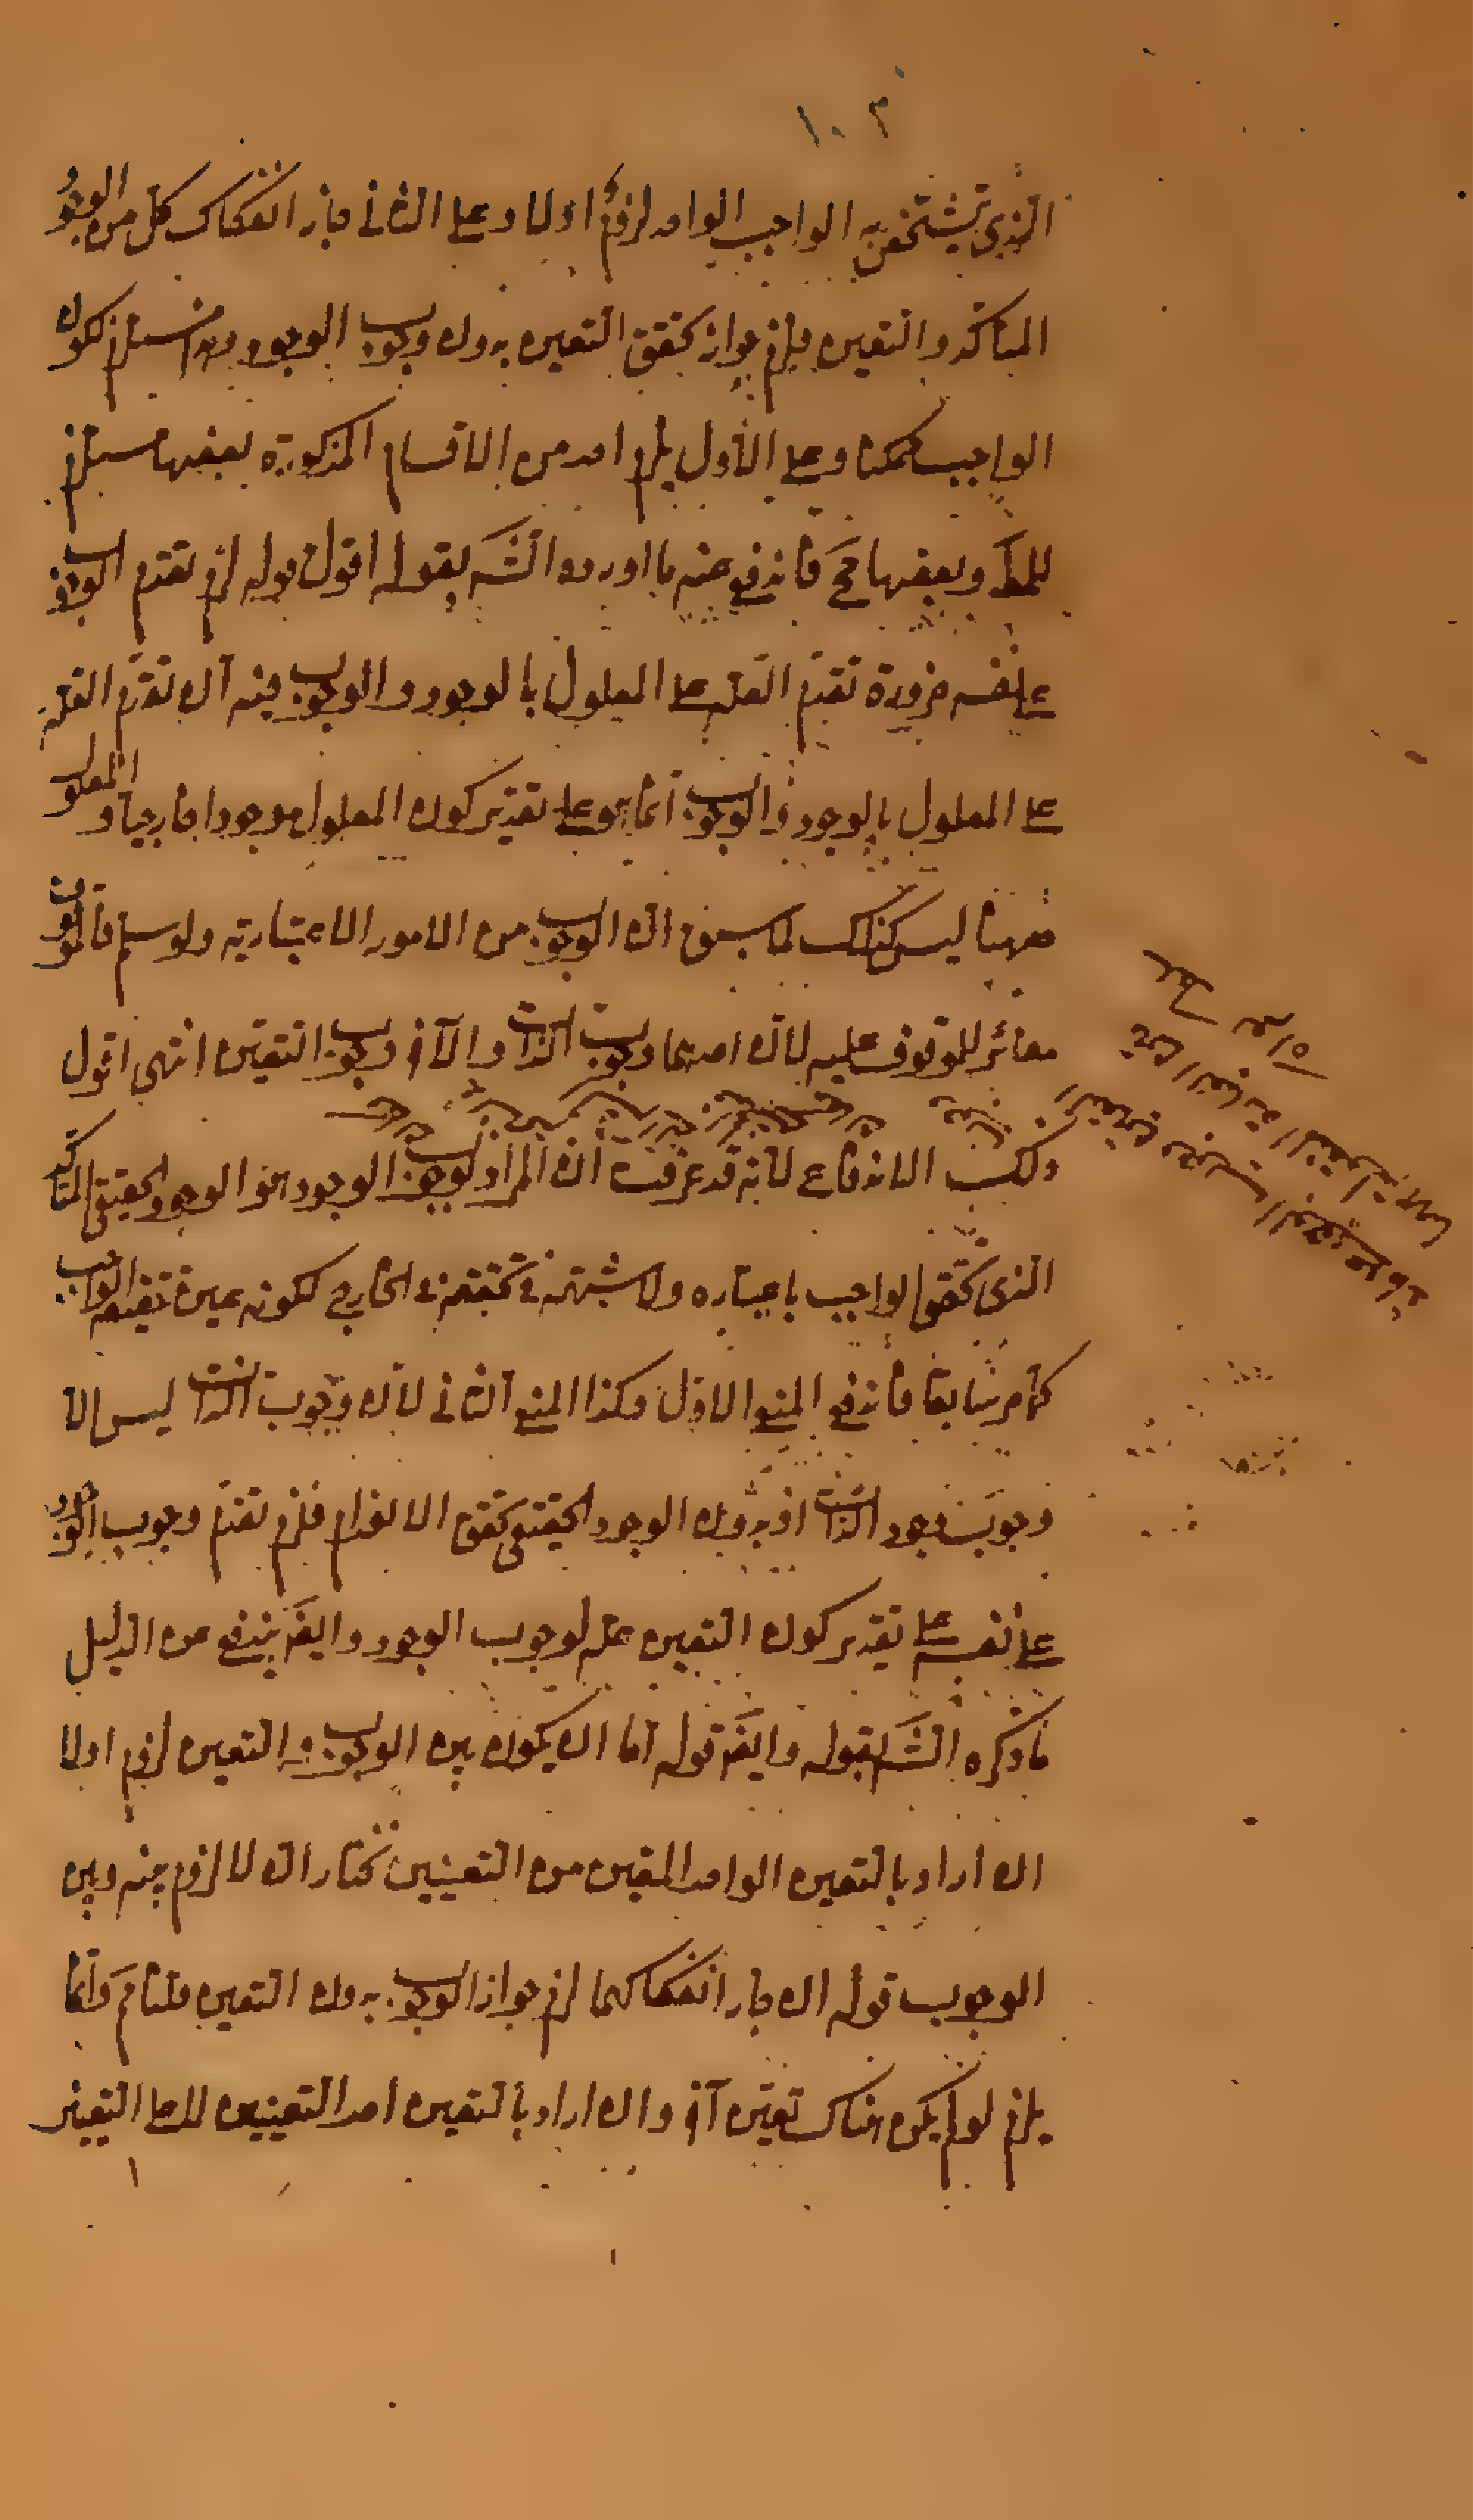 ١٠٢
الذي يتشخص به الواجب الواحد لزوم اولا وعلى الثاني جاز انفكاك كل من الوجود
المتأكد والتعين فيلزم جواز تحقق التعين بدون وجوب الوجود وهذا يستلزم كون
الواجب ممكنا وعلى الأول يلزم احد من الاقسام المذكورة بعضها مستلزم
للمط وبعضها مح فاندفع عنه ما اورده الشه بقوله اقول قوله لزم تقدم الوجوب
على نفسه ضرورة تقدم العلة على المعلول بالوجود والوجوب فيه ان تقدم العلة
على المعلول بالوجود والوجوب انما هو على تقدير كون المعلول موجودا خارجيا والمعلول
ههنا ليس كذلك لما سبق ان الوجوب من الامور الاعتبارية ولو سلم فالموقوف
مغائر للموقوف عليه لان احدهما وجوب الذات والآخر وجوب التعين انتهى اقول
وذلك الاندفاع لانه قد عرفت ان المراد بوجوب الوجود هو الوجود الحقيقي المتأكد
الذي تحقق الواجب باعتباره ولا شبهة في تحققه في الخارج لكونه عين حقيقة الواجب
كما مر سابقا فاندفع المنع الاول وكذا المنع الثاني لان وجوب الذات ليس الا
وجوب وجود الذات اذ بدون الوجود الحقيقي تحقق الانعدام فلزم تقدم وجوب الوجود
على نفسه على تقدير كون التعين علة لوجوب الوجود وايضا يندفع عن الدليل
ما ذكره الشه بقوله وايضا قوله اما ان يكون بين الوجوب والتعين لزوم اولا
ان اراد بالتعين الواحد المعين من التعينين نختار ان لا لزوم بينه وبين
الوجوب قوله ان جاز انفكاكهما لزم جواز الوجوب بدون التعين قلنا مم وانما
يلزم لو لم يكن هناك تعين آخر وان اراد بالتعين احد التعينين لا على التعيين